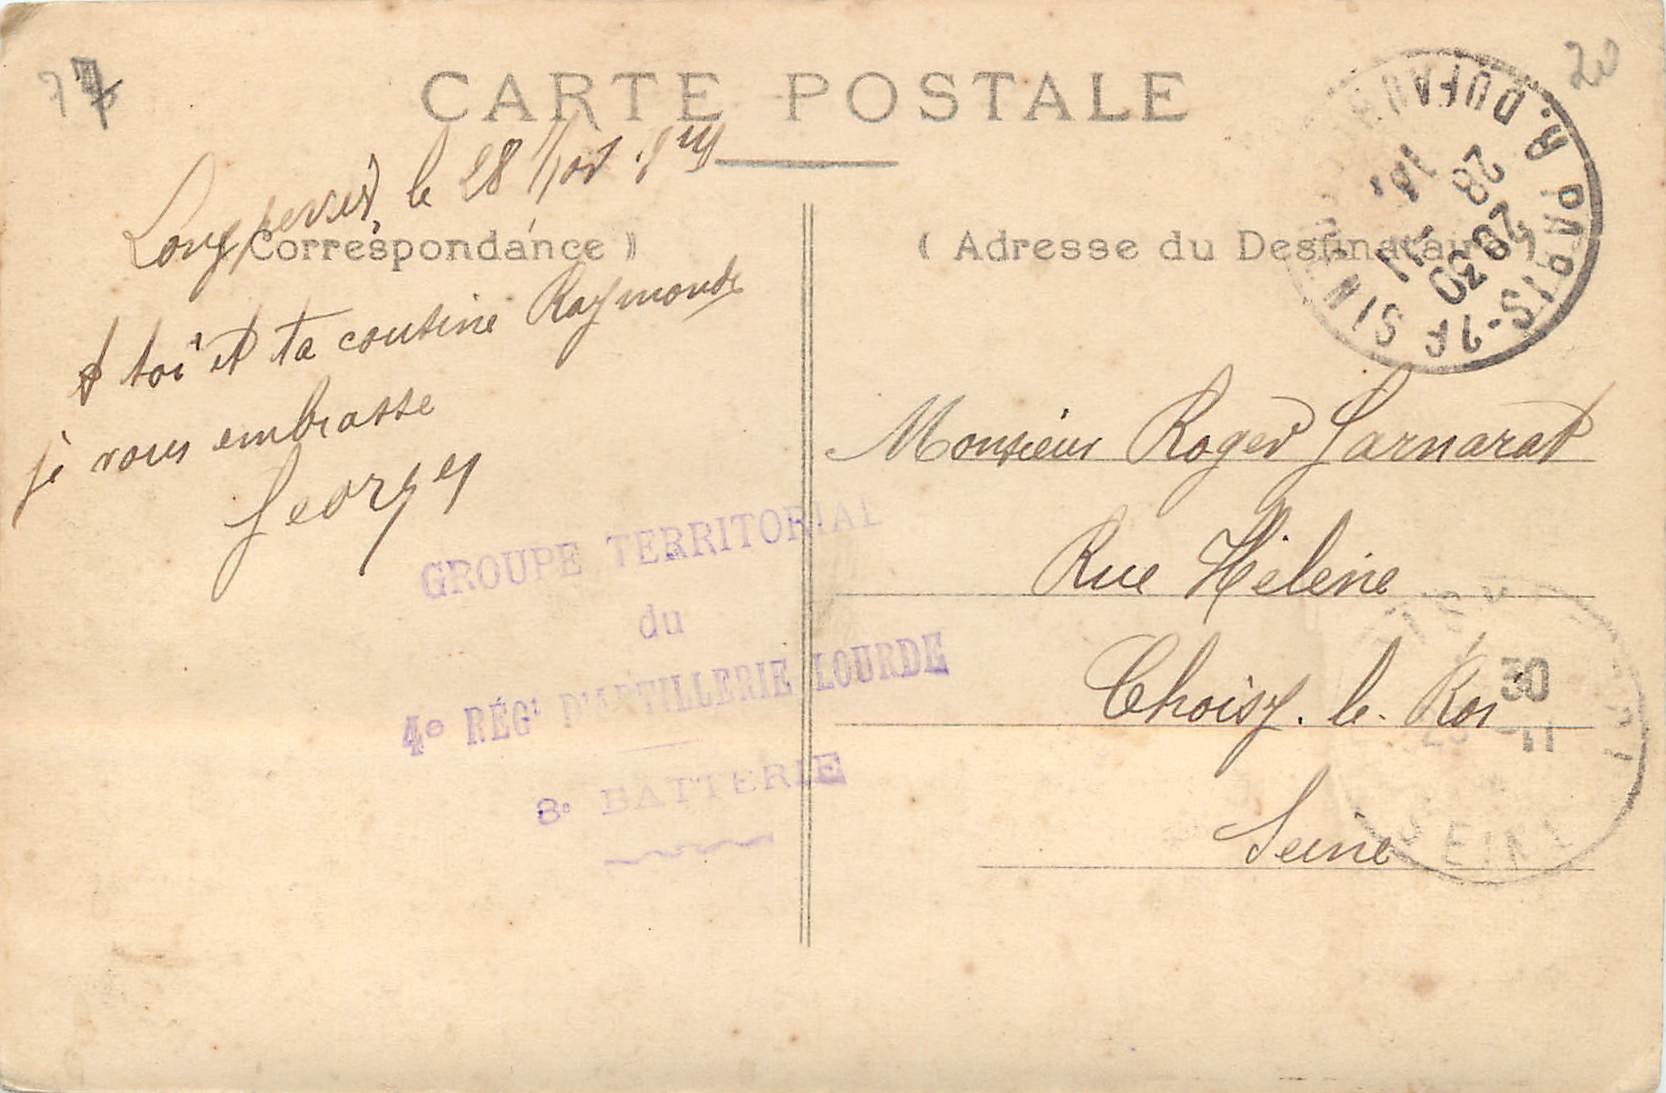 77
20
CARTE POSTALE
Longperrier, le 28 Nov
Correspondance )
à toi et ta cousine Raymonde
je vous embrasse
Georges
GROUPE TERRITORIAL
du
4e RÉGt D'ARTILLERIE LOURDE
8e BATTERIE
( Adresse du Destinataire )
PARIS-26 R. DUFAU
28
20 30
-11
Monsieur Roger Garnarat
Rue Hélène
Choisy-le-Roi
Seine
30
-11
SEINE